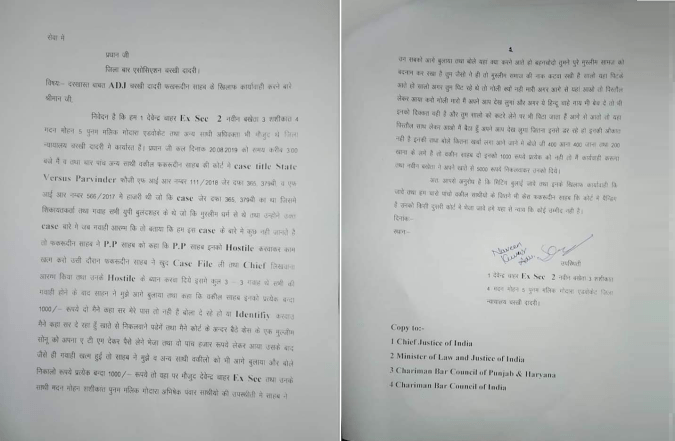 सेवा में
प्रधान जी
जिला बार एसोसिएशन चरखी दादरी।
विषय:- दरखास्त बाबत ADJ चरखी दादरी फखरूदीन साहब के खिलाफ कार्यवाही करने बारे
श्रीमान जी,
निवेदन है कि हम 1 देवेन्द्र चाहर Ex Sec 2 नवीन बखेता 3 शशीकांत 4
मदन मोहन 5 पुनम मलिक गोदारा एडवोकेट तथा अन्य साथी अधिवक्ता भी मौजूद थे जिला
न्यायालय चरखी दादरी में कार्यरत हैं। प्रधान जी कल दिनांक 20.08.2019 को समय करीब 3.00
बजे मैं व तथा चार पांच अन्य साथी वकील फकरूदीन साहब की कोर्ट में case title State
Versus Parvinder फौजी एफ आई आर नम्बर 111/2018 जेर दफा 365, 379बी व एफ
आई आर नम्बर 566/2017 में हाजरी थी जो कि case जेर दफा 365, 379बी का था जिसमें
शिकायतकर्ता तथा गवाह सभी यूपी बुलंदशहर के थे जो कि मुस्लिम धर्म से थे तथा उन्होंने उक्त
case बारे में जब गवाही आरम्भ कि तो बताया कि हम इस case के बारे में कुछ नहीं जानते है
तो फकरूदीन साहब ने P.P साहब को कहा कि P.P साहब इनको Hostile करवाकर काम
खत्म करो उसी दौरान फकरूदीन साहब ने खुद Case File ली तथा Chief लिखवाना
आरम्भ किया तथा उनके Hostile के ब्यान करवा दिये इसमें कुल 3 - 3 गवाह थे सभी की
गवाही होने के बाद साहब ने मुझे आगे बुलाया तथा कहा कि वकील साहब इनको प्रत्येक बन्दा
1000/- रूपये दो मैंने कहा सर मेरे पास तो नहीं है बोला दे रहे हो या Identifiy करवाउ
मैंने कहा सर दे रहा हूँ खाते से निकलवाने पडेगें तथा मैंने कोर्ट के अन्दर बैठे केस के एक मुल्जीम
सोनू को अपना ए टी एम देकर पैसे लेने भेजा तथा वो पांच हजार रूपये लेकर आया उसके बाद
जैसे ही गवाही खत्म हुई तो साहब ने मुझे व अन्य साथी वकीलो को भी आगे बुलाया और बोले
निकालो रूपये प्रत्येक बन्दा 1000/- रूपये तो वहा पर मौजूद देवेन्द्र चाहर Ex Sec तथा उनके
साथी मदन मोहन शशीकांत पुनम मलिक गोदारा अभिषेक पवार साथीयो की उपस्थीती में साहब ने
4.
उन सबको आगे बुलाया तथा बोले यहा क्या करने आते हो बहनचोदो तुमने पुरे मुस्लीम समाज को
बदनाम कर रखा है तुम जैसो ने ही तो मुस्लीम समाज की नाक कटवा रखी है सालो यहा पिटके
जाते हो सालो अगर तुम पिट रहे थे तो गोली क्यो नही मारी अगर आगे से यहा आओ तो पिस्तौल
लेकर आना करो गोली मारो मैं अपने आप देख लुगा और अगर ये हिन्दू चाहे गाय भी बेच दे तो भी
इनको दिक्कत नहीं है और तुम सालो को कटडे लेने पर भी पिटा जाता हैं आगे से आओ तो यहा
पिस्तौल साथ लेकर आओ मैं बैठा हूँ अपने आप देख लुगा जितना इनसे डर रहे हो इनकी औकात
नही है इनकी साथ बोले कितना खर्चा लगा आने जाने में बोले जी 400 आना 400 जाना तथा 200
खाना के लगे है तो वकील साहब दो इनको 1000 रूपये प्रत्येक को नही तो मैं कार्यवाही करूगा
तथा नवीन बखेता ने अपने खाते से 5000 रूपये निकलवाकर उनको दिये।
अतः आपसे अनुरोध है कि मिटिंग बुलाई जावे तथा इनके खिलाफ कार्यवाही कि
जावे तथा हम चारो पांचो वकील साथीयो के जितने भी केस फकरूदीन साहब कि कोर्ट में पेन्डिग
है उनको किसी दुसरी कोर्ट में भेजा जावे हमे यहा से न्याय कि कोई उम्मीद नही है।
दिनांक:-
स्थान:-
Naveen
Kumar
Adv.
1 देवेन्द्र चाहर Ex Sec 2 नवीन बखेता 3 शशीकांत
4 मदन मोहन 5 पुनम मलिक गोदारा एडवोकेट जिला
न्यायालय चरखी दादरी।
Copy to:-
1 Chief Justice of India
2 Minister of Law and Justice of India
3 Chariman Bar Council of Punjab & Haryana
4 Chariman Bar Council of India